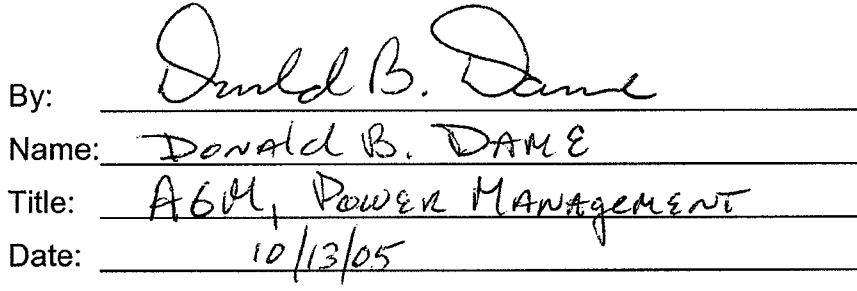 By: Donald B. Dame
Name: Donald B. DAME
Title: AGM, POWER MANAGEMENT
Date: 10/13/05